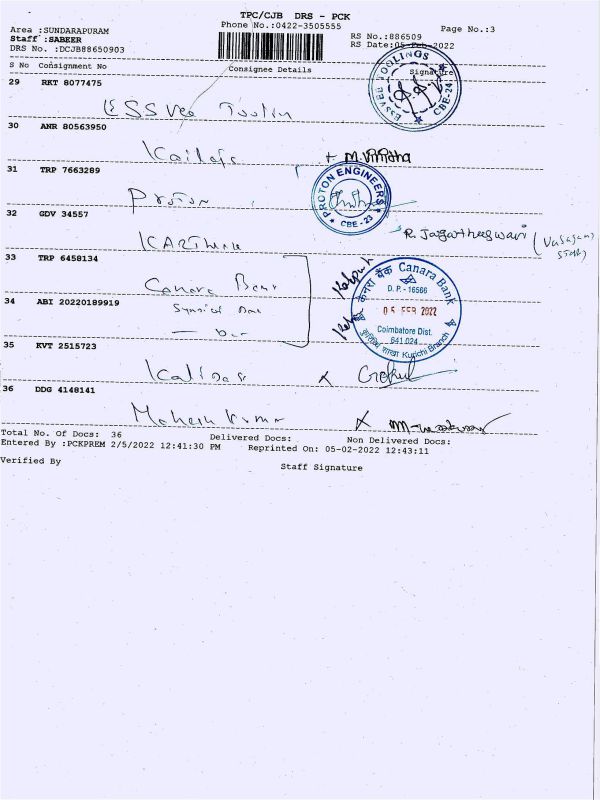 TPC/CJB DRS - PCK
Phone No.:0422-3505555
Page No.:3
Area :SUNDARAPURAM
Staff :SABEER
DRS No. :DCJB88650903
RS No.:886509
RS Date:05-Feb-2022
S No Consignment No Consignee Details Signature
29 RKT 8077475
ESSVEE TOOLINGS
CBE-24
ESSVee Toolin
30 ANR 80563950
Kailash
M.Vinitha
31 TRP 7663289
Proton
PROTON ENGINEERS
CBE - 23
32 GDV 34557
R. Jagatheeswari
33 TRP 6458134
Canara Bank
केनरा बैंक Canara Bank
D. P. - 16566
05 FEB 2022
Coimbatore Dist.
641 024
Kurichi Branch
34 ABI 20220189919
35 KVT 2515723
Kalidas
Gokul
36 DDG 4148141
Mahesh Kumar
Total No. Of Docs: 36 Delivered Docs: Non Delivered Docs:
Entered By :PCKPREM 2/5/2022 12:41:30 PM Reprinted On: 05-02-2022 12:43:11
Verified By Staff Signature